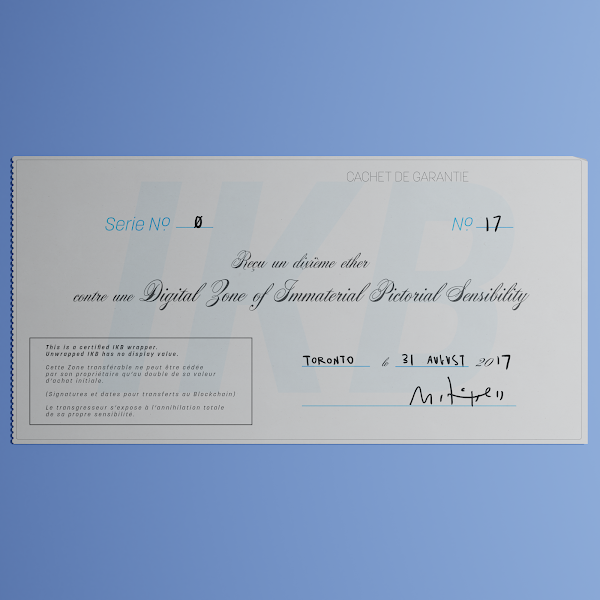 CACHET DE GARANTIE
Serie Nº 0 Nº 17
Reçu un dixième ether
contre une Digital Zone of Immaterial Pictorial Sensibility
This is a certified IKB wrapper.
Unwrapped IKB has no display value.
Cette Zone transférable ne peut être cédée
par son propriétaire qu'au double de sa valeur
d'achat initiale.
(Signatures et dates pour transferts au Blockchain)
Le transgresseur s'expose à l'annihilation totale
de sa propre sensibilité.
TORONTO le 31 AUGUST 2017
IKB